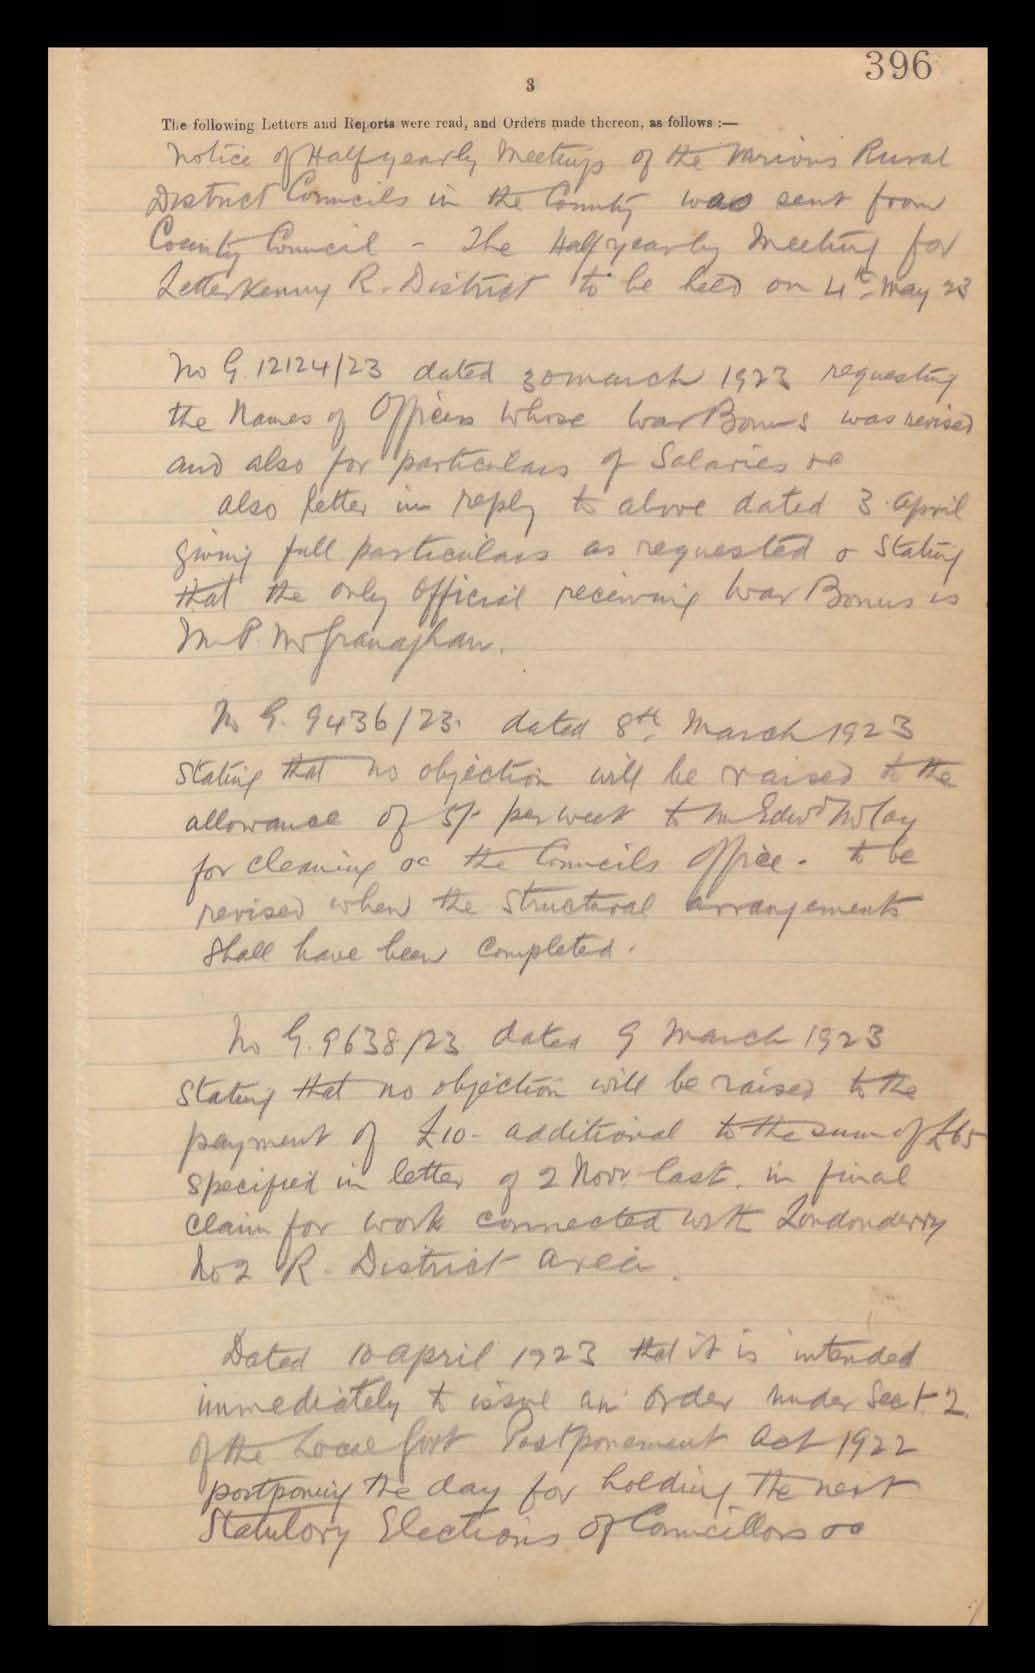 396
3
The following Letters and Reports were read, and Orders made thereon, as follows :—
Notice of Half yearly Meetings of the Various Rural
District Councils in the County was sent from
County Council - The Half yearly Meeting for
Letterkenny R. District to be held on 4th May 23
No G. 12124/23 dated 30 march 1923 requesting
the Names of Officers whose War Bonus was revised
and also for particulars of Salaries &c
also letter in reply to above dated 3 April
giving full particulars as requested & Stating
that the only Official receiving War Bonus is
Mr P. McGranaghan.
No G. 9436/23. dated 8th March 1923
Stating that no objection will be raised to the
allowance of 5/- per week to Mr Edwd McCay
for cleaning &c the Councils Office. to be
revised when the Structural arrangements
shall have been Completed.
No G. 9638/23 dated 9 March 1923
Stating that no objection will be raised to the
payment of £10- additional to the sum of £65
specified in letter of 2 Novr last. in final
claim for work connected with Londonderry
No 2 R. District area.
Dated 10 April 1923 that it is intended
immediately to issue an Order under Sect. 2.
of the Local Govt Postponement Act 1922
postponing the day for holding the next
Statutory Elections of Councillors &c